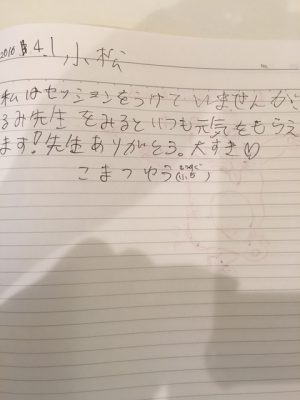 2010 4.1 小松
私はセッションをうけていませんがく
るみ先生をみるといつも元気をもらえ
ます!先生ありがとう。大すき♡
こまつ ゆう